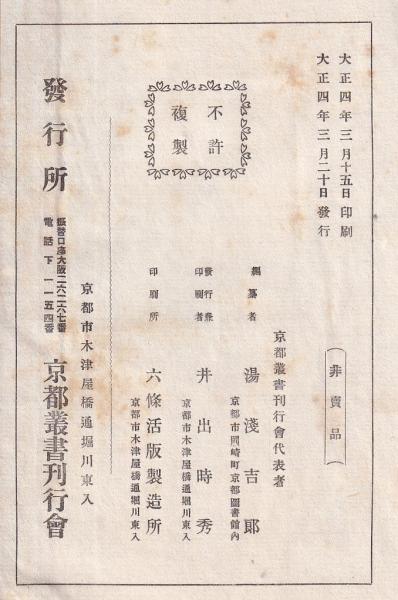 大正四年三月十五日印刷
大正四年三月二十日發行
（非賣品）
不許
複製
京都叢書刊行會代表者
編纂者 湯淺吉郎
京都市岡崎町京都圖書館內
發行兼
印刷者 井出時秀
京都市木津屋橋通堀川東入
印刷所 六條活版製造所
京都市木津屋橋通堀川東入
京都市木津屋橋通堀川東入
發行所 京都叢書刊行會
振替口座大阪二六二六七番
電話下一一五四番